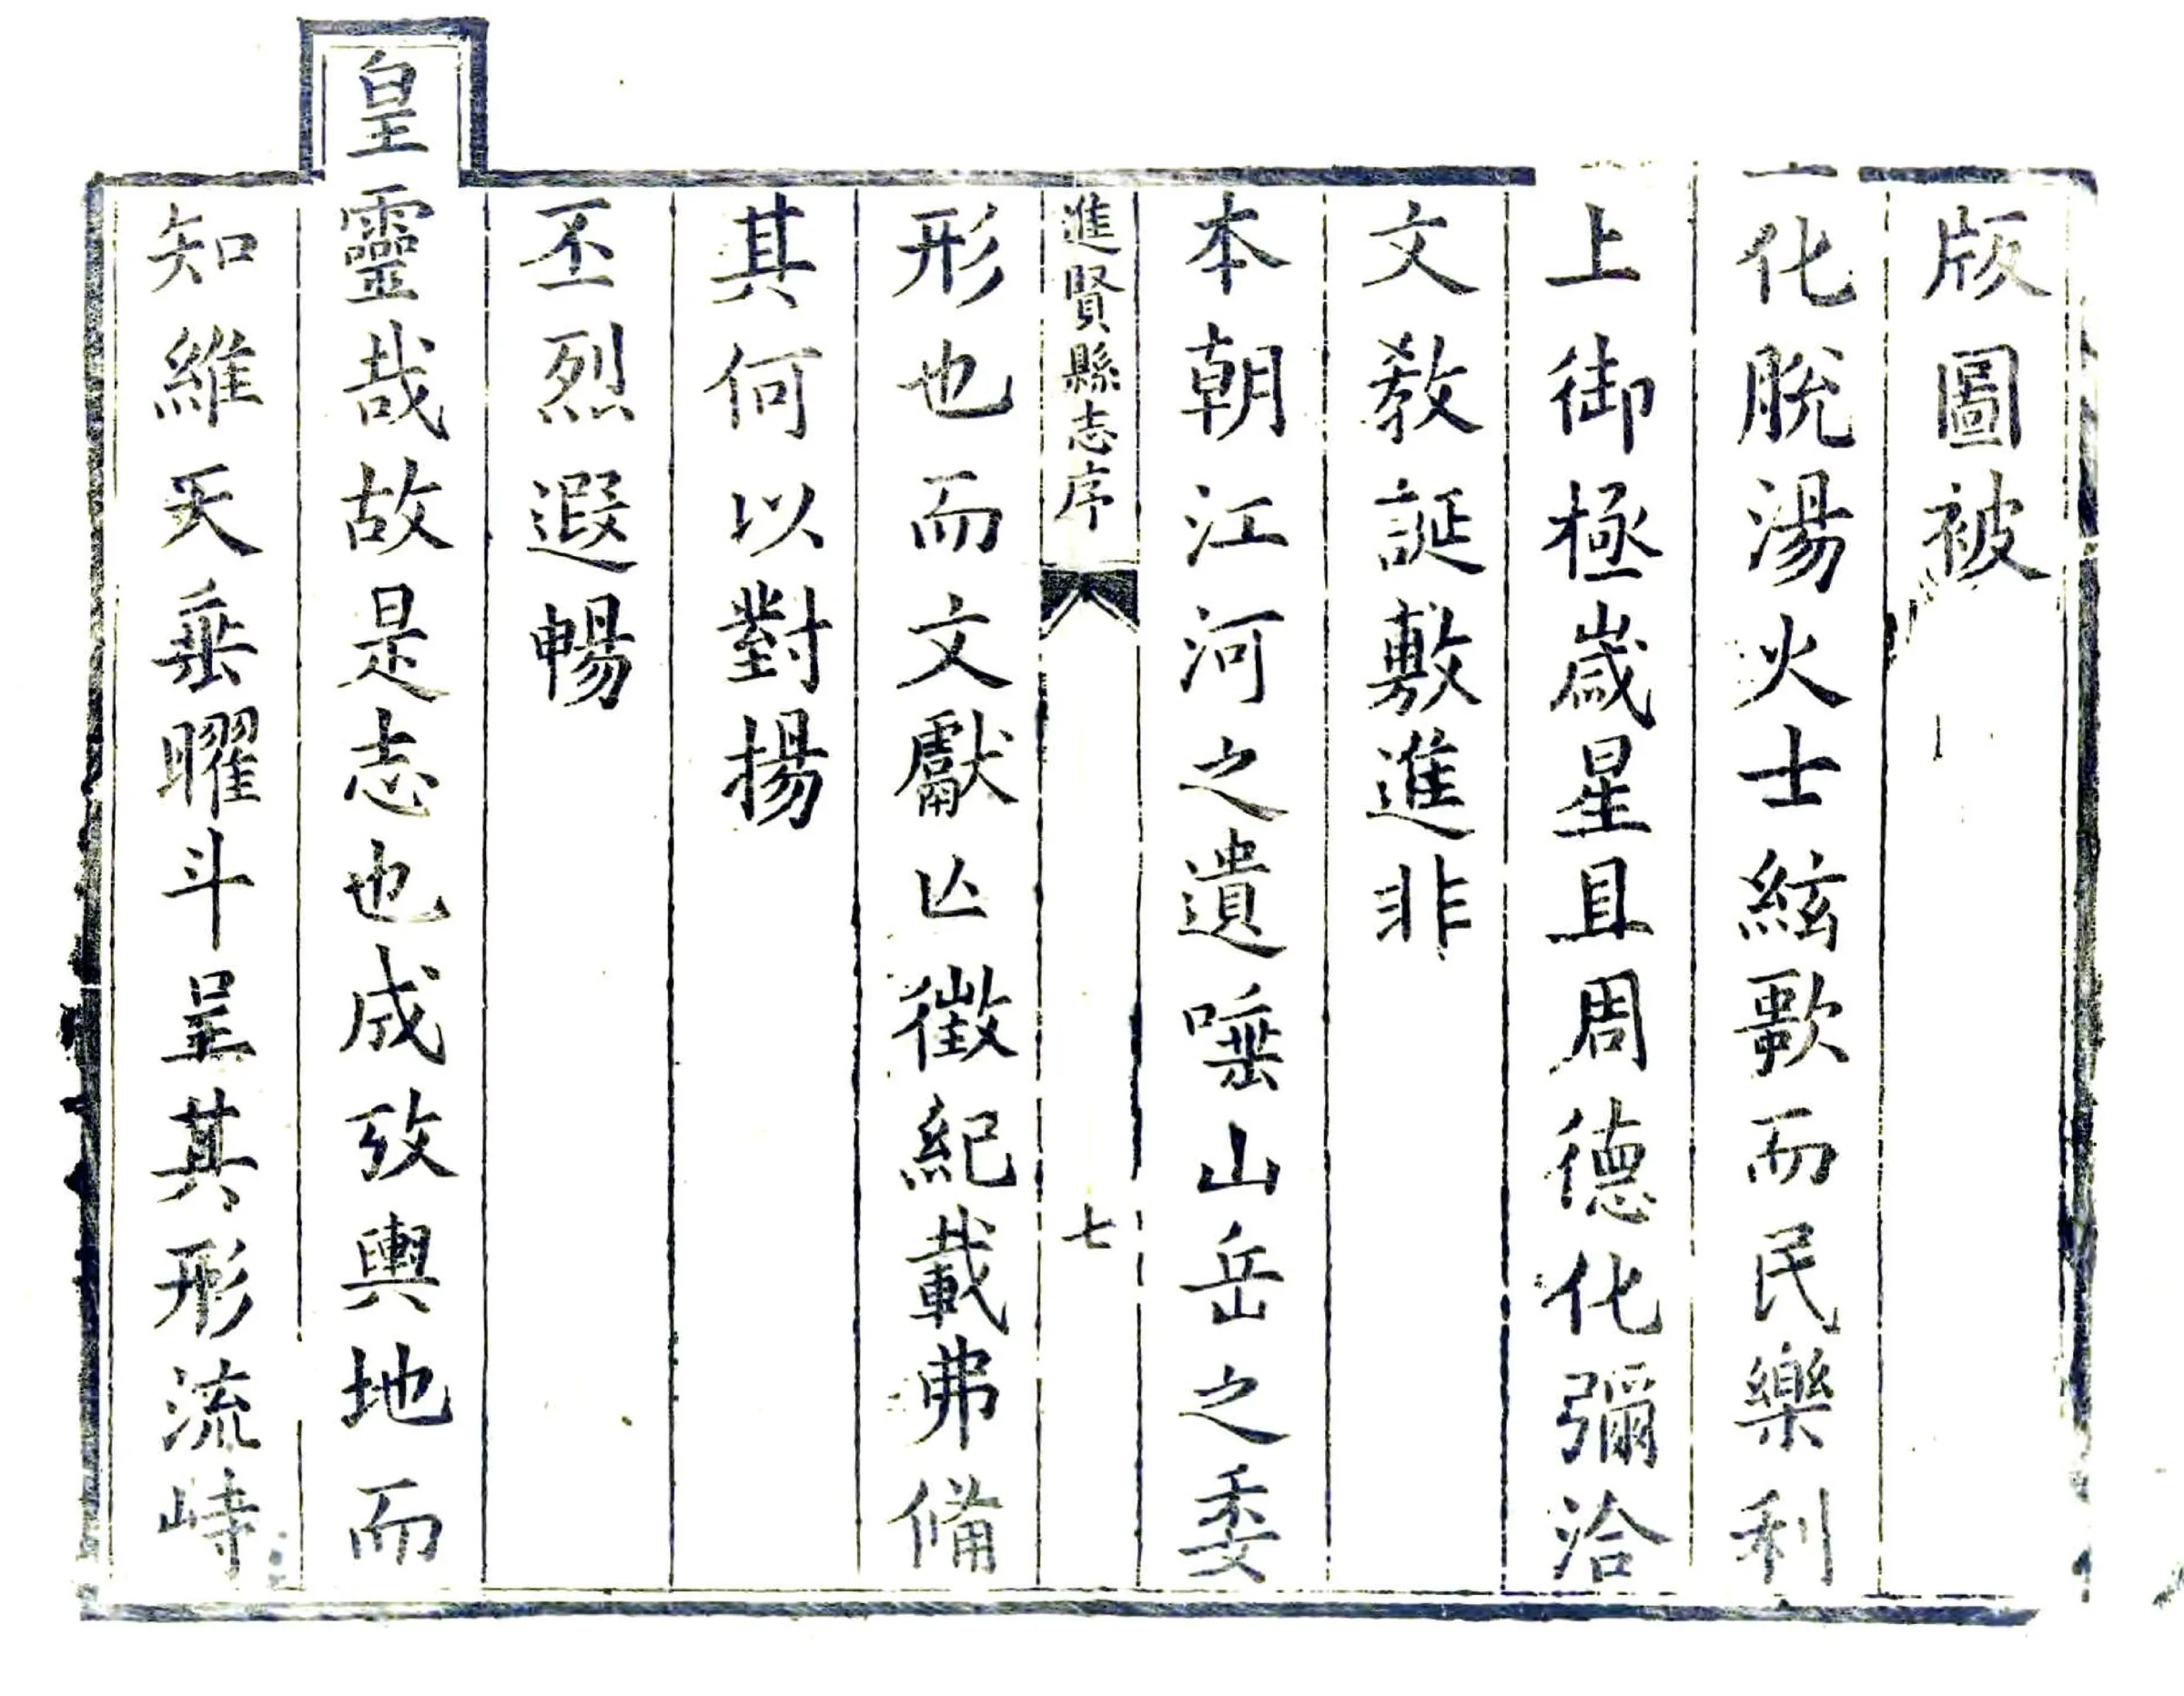 版圖被
化脫湯火士絃歌而民樂利
上御極歲星且周德化彌洽
文教誕敷進非
本朝江河之遺唾山岳之委
進賢縣志序 七
形也而文獻亾徵紀載弗備
其何以對揚
丕烈遐暢
皇靈哉故是志也成攷輿地而
知維天垂曜斗呈其形流峙